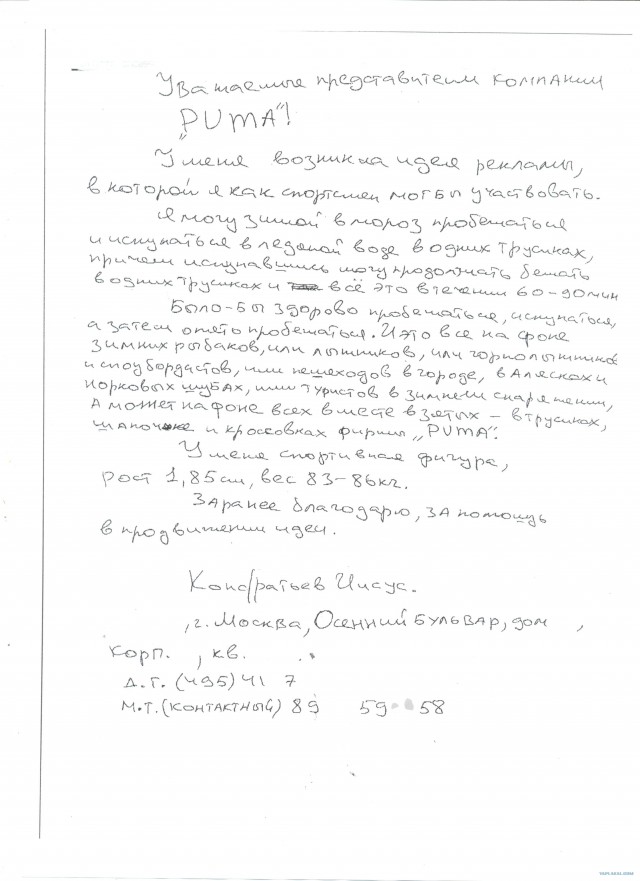 Уважаемые представители компании
„PUMA"!
У меня возникла идея рекламы,
в которой я как спортсмен мог бы участвовать.
Я могу зимой в мороз пробежаться
и искупаться в ледяной воде в одних трусиках,
причем искупавшись могу продолжать бежать
в одних трусиках и всё это в течении 60-90 мин
Было-бы здорово пробежаться, искупаться,
а затем опять пробежаться. И это все на фоне
зимних рыбаков, или лыжников, или горнолыжников
и сноубордистов, или пешеходов в городе, в Алясках и
норковых шубах, или туристов в зимнем снаряжении,
А может на фоне всех вместе взятых - в трусиках,
шапочке и кроссовках фирмы „PUMA".
У меня спортивная фигура,
рост 1,85 см, вес 83-86 кг.
Заранее благодарю, за помощь
в продвижении идеи.
Кондратьев Иисус.
, г. Москва, Осенний бульвар, дом ,
корп. , кв. .
Д.Т. (495) 41 7
М.Т. (контактный) 89 59 58
YAPLAKAL.COM